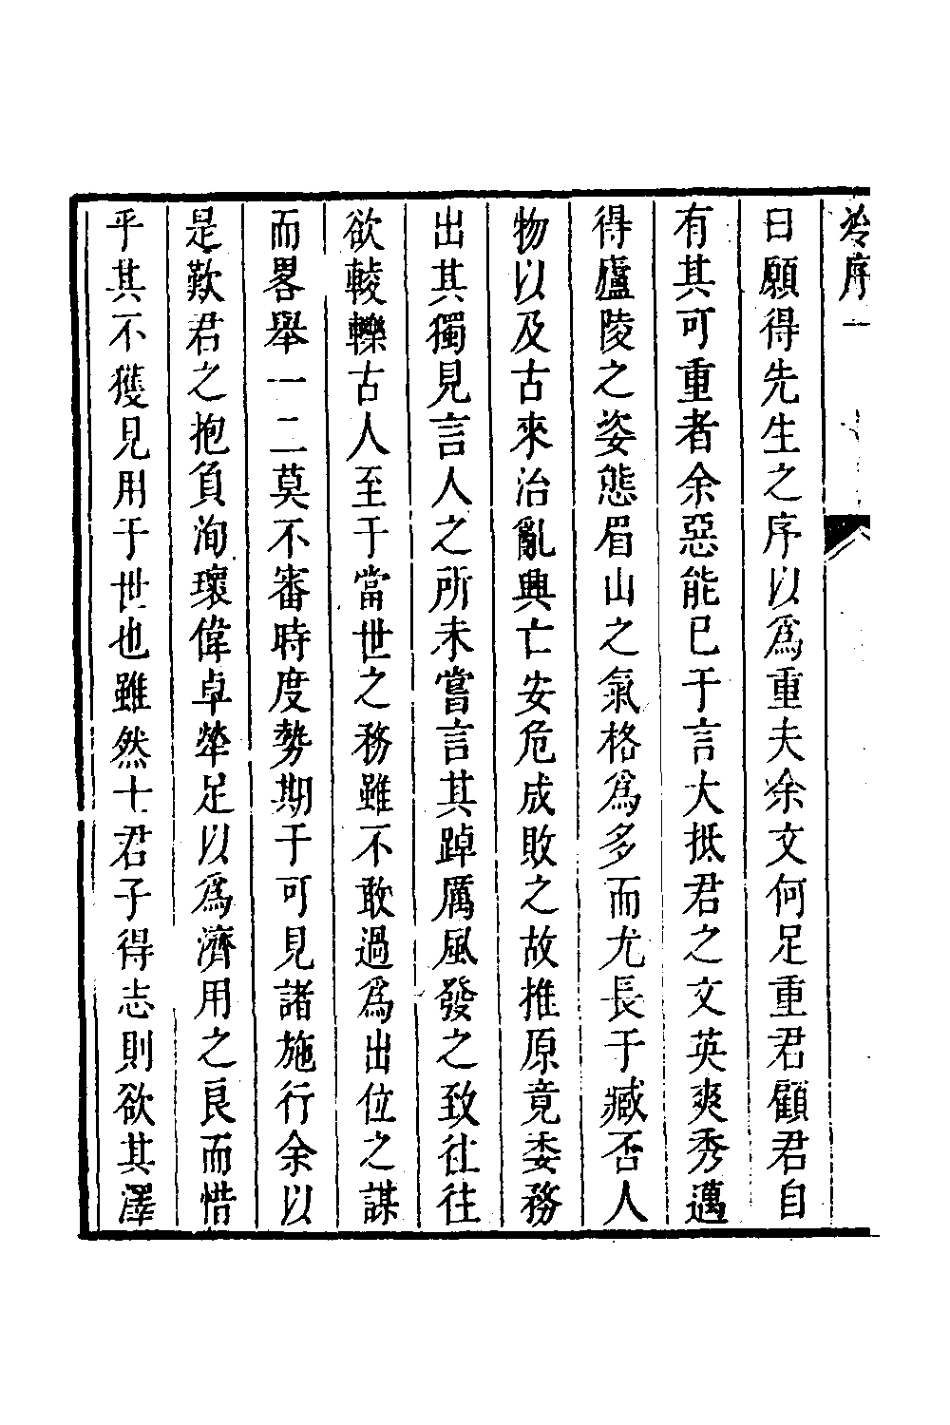 冷序 一
曰願得先生之序以爲重夫余文何足重君顧君自
有其可重者余惡能已于言大抵君之文英爽秀邁
得廬陵之姿態眉山之氣格爲多而尤長于臧否人
物以及古來治亂興亡安危成敗之故推原竟委務
出其獨見言人之所未嘗言其踔厲風發之致往往
欲輘轢古人至于當世之務雖不敢過爲出位之謀
而畧舉一二莫不審時度勢期于可見諸施行余以
是歎君之抱負洵瓌偉卓犖足以爲濟用之良而惜
乎其不獲見用于世也雖然士君子得志則欲其澤